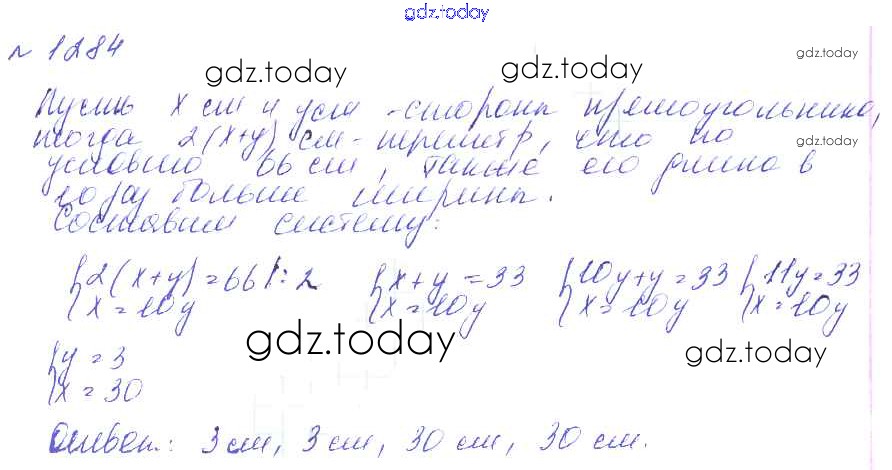 gdz.today
№ 1284
gdz.today
gdz.today
gdz.today
Пусть x см и y см - стороны прямоугольника,
тогда 2(x+y) см - периметр, что по
gdz.today
условию 66 см, также его длина в
10 раз больше ширины.
Составим систему:
{2(x+y)=66 |:2 {x+y=33 {10y+y=33 {11y=33
{x=10y {x=10y {x=10y {x=10y
gdz.today
gdz.today
{y=3
{x=30
Ответ: 3 см, 3 см, 30 см, 30 см.